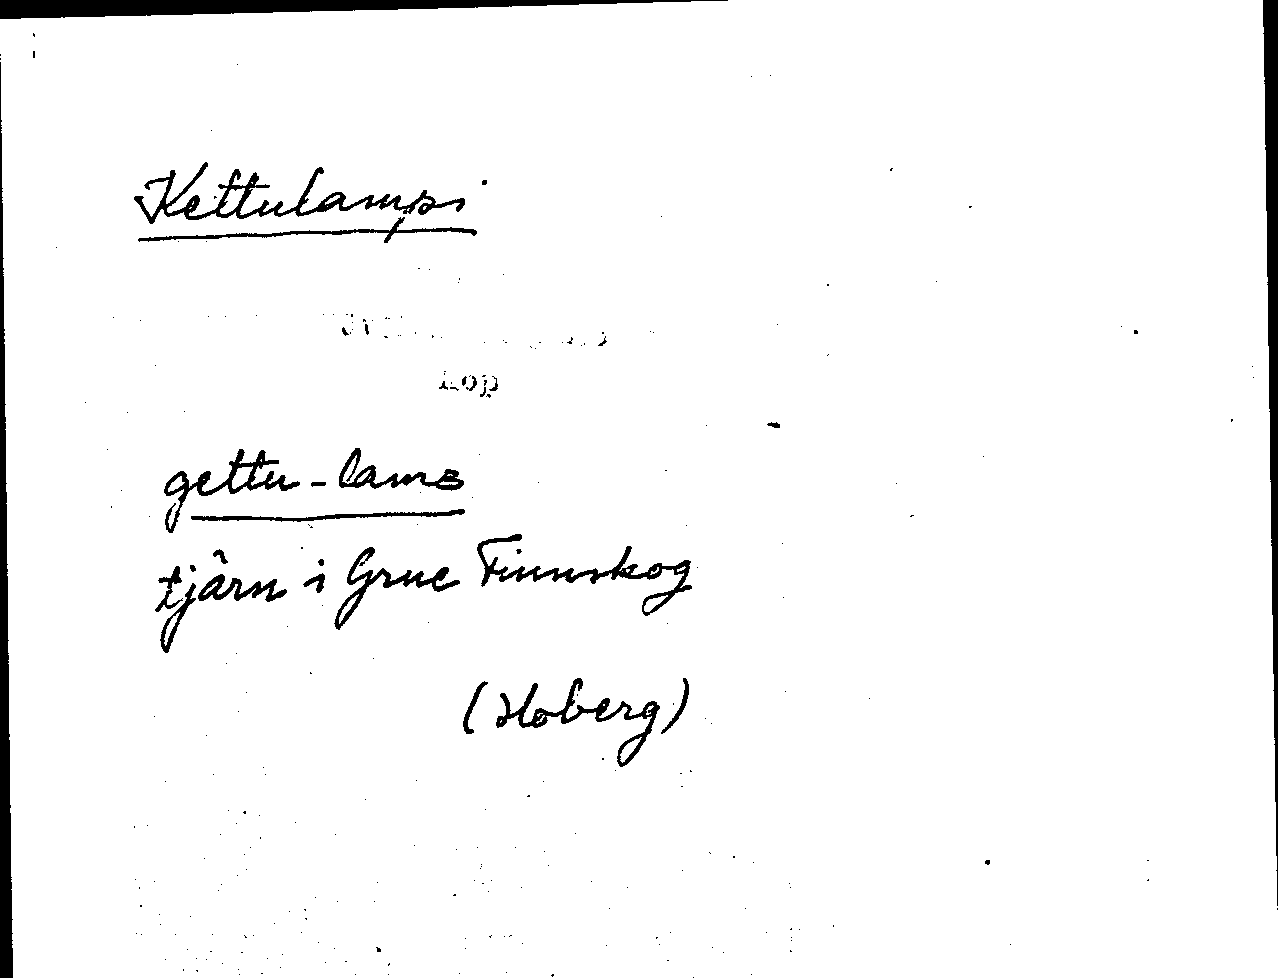 Kettulampi
kop
gettu-lamʙ
tjärn i Grue Finnskog
(Hoberg)